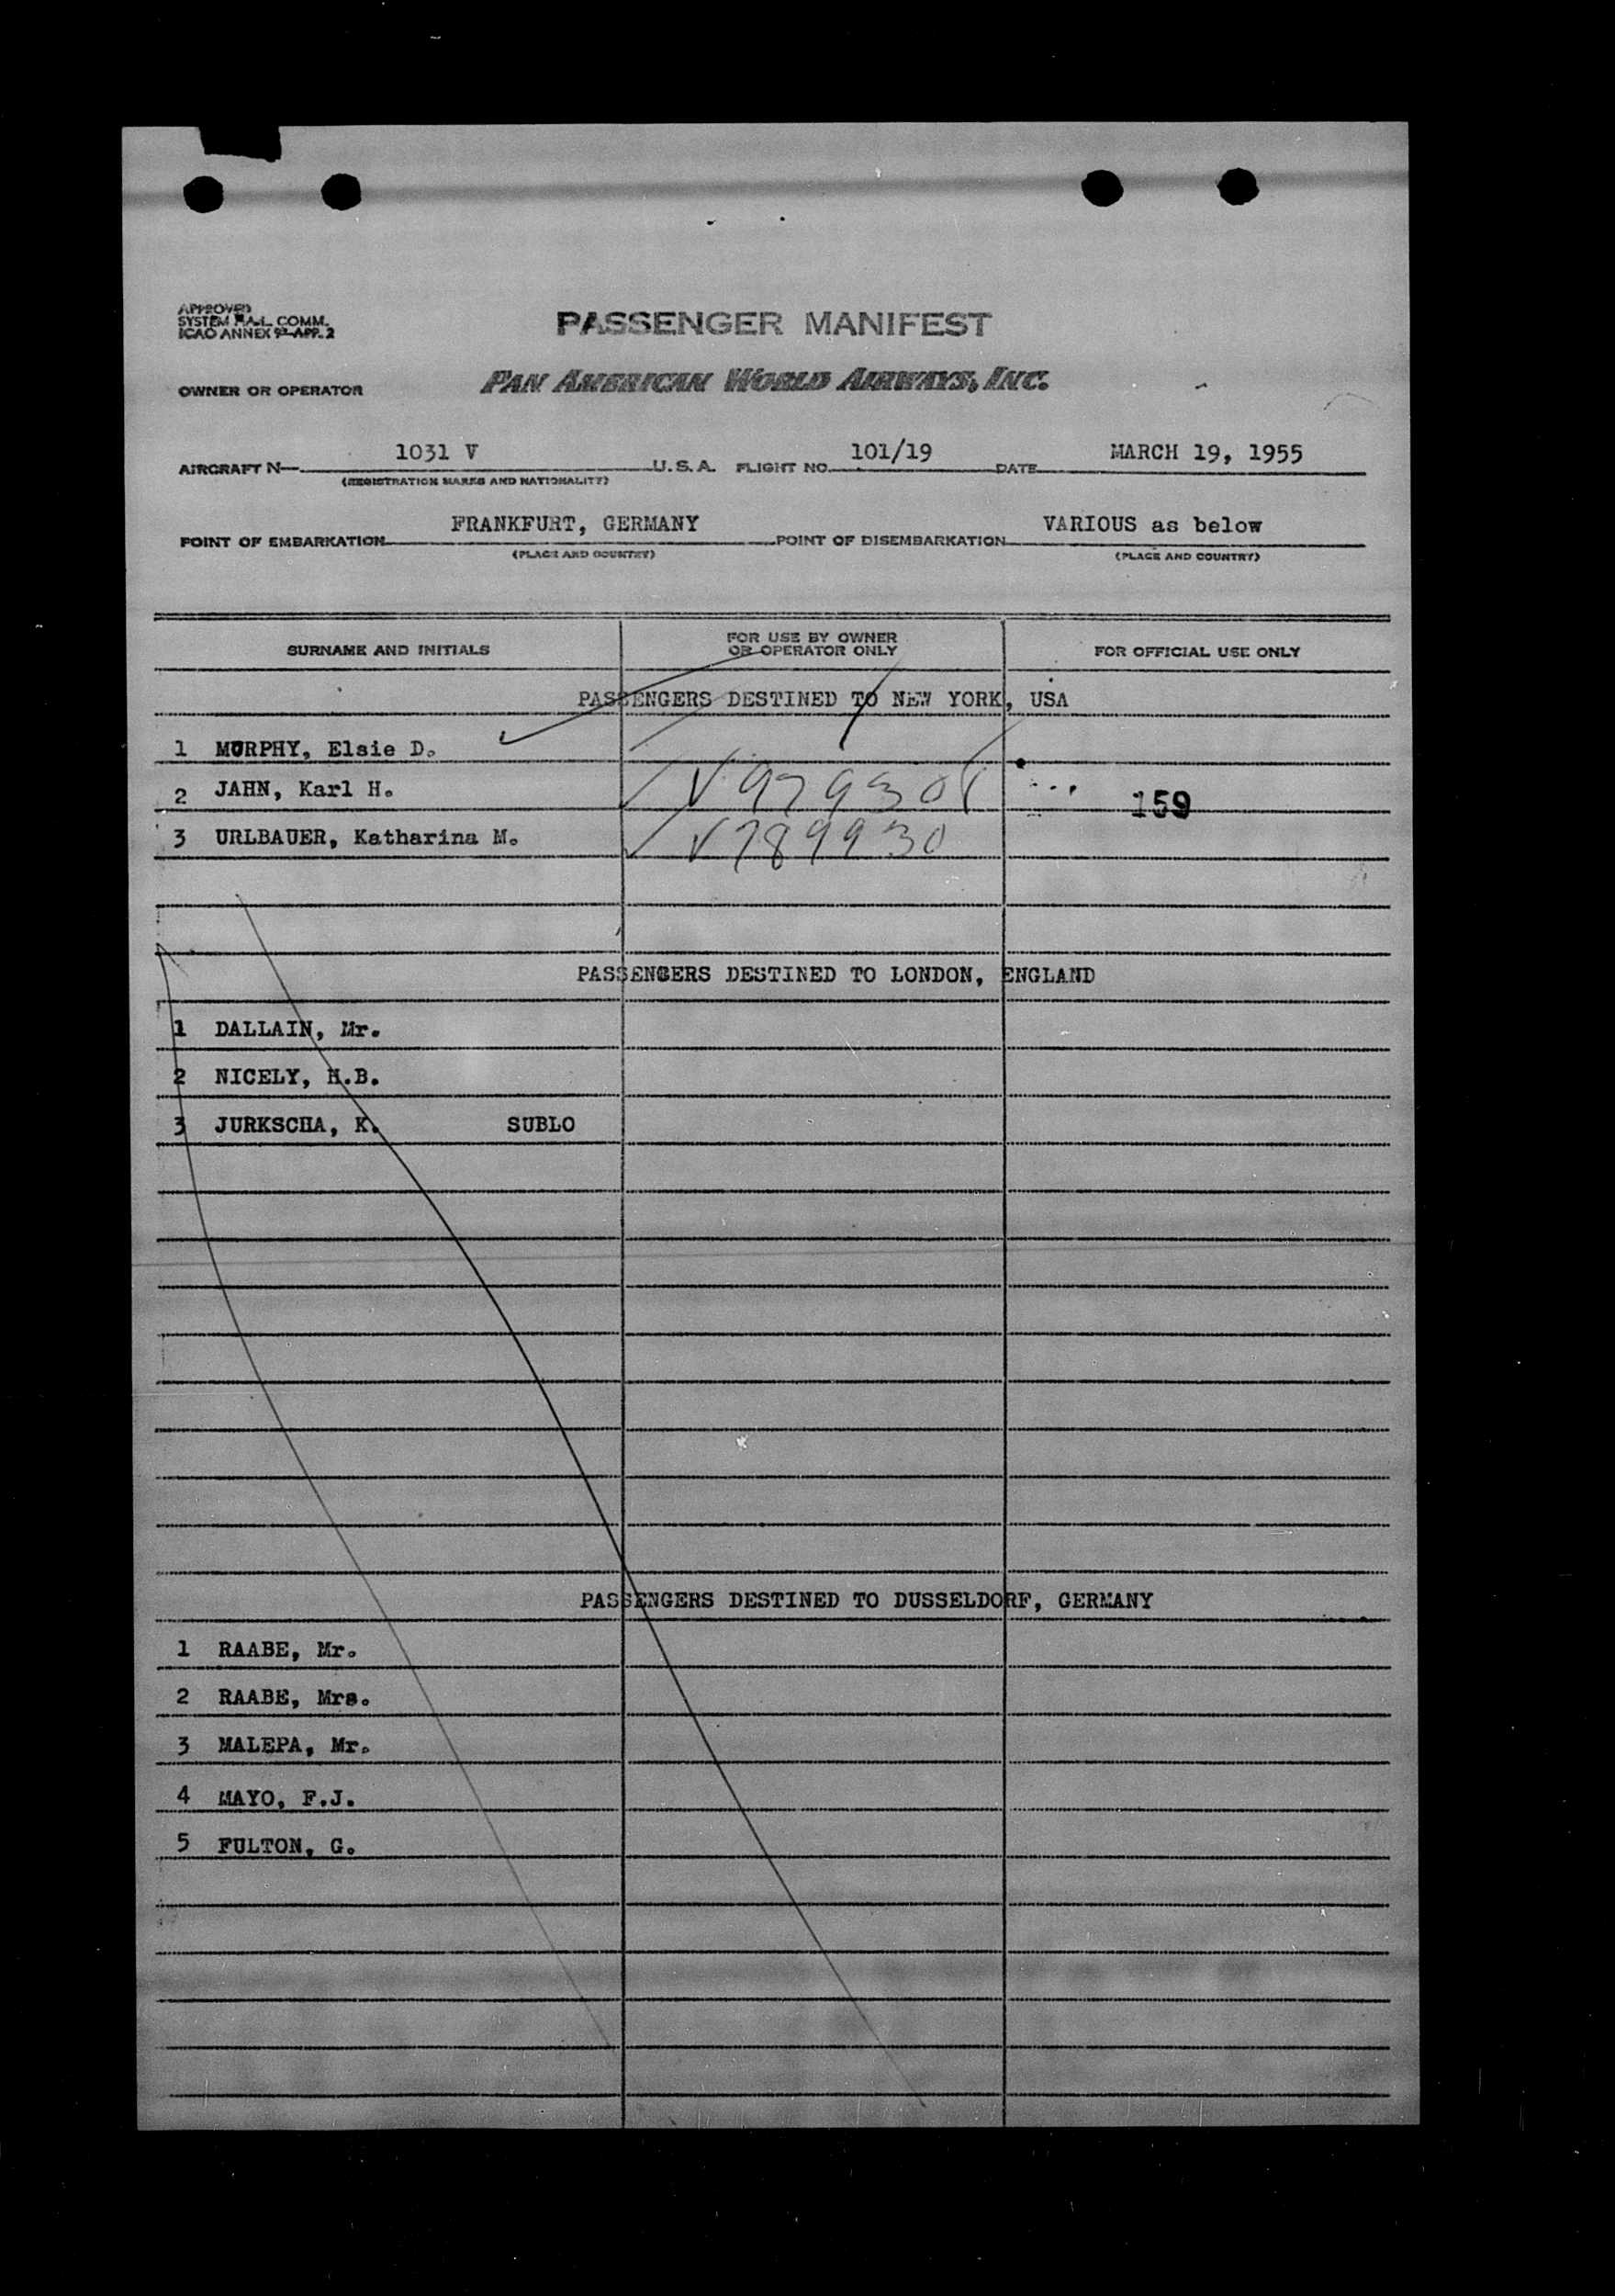 APPROVED
SYSTEM MAL. COMM.
ICAO ANNEX 9 APP. 2
PASSENGER MANIFEST
OWNER OR OPERATOR PAN AMERICAN WORLD AIRWAYS, INC.
AIRCRAFT N— 1031 V U.S.A. FLIGHT NO. 101/19 DATE MARCH 19, 1955
(REGISTRATION MARKS AND NATIONALITY)
POINT OF EMBARKATION FRANKFURT, GERMANY POINT OF DISEMBARKATION VARIOUS as below
(PLACE AND COUNTRY) (PLACE AND COUNTRY)
SURNAME AND INITIALS FOR USE BY OWNER OR OPERATOR ONLY FOR OFFICIAL USE ONLY
PASSENGERS DESTINED TO NEW YORK, USA
1 MURPHY, Elsie D.
2 JAHN, Karl H. 159
3 URLBAUER, Katharina M. V789930
PASSENGERS DESTINED TO LONDON, ENGLAND
1 DALLAIN, Mr.
2 NICELY, H.B.
3 JURKSCHA, K. SUBLO
PASSENGERS DESTINED TO DUSSELDORF, GERMANY
1 RAABE, Mr.
2 RAABE, Mrs.
3 MALEPA, Mr.
4 MAYO, F.J.
5 FULTON, G.